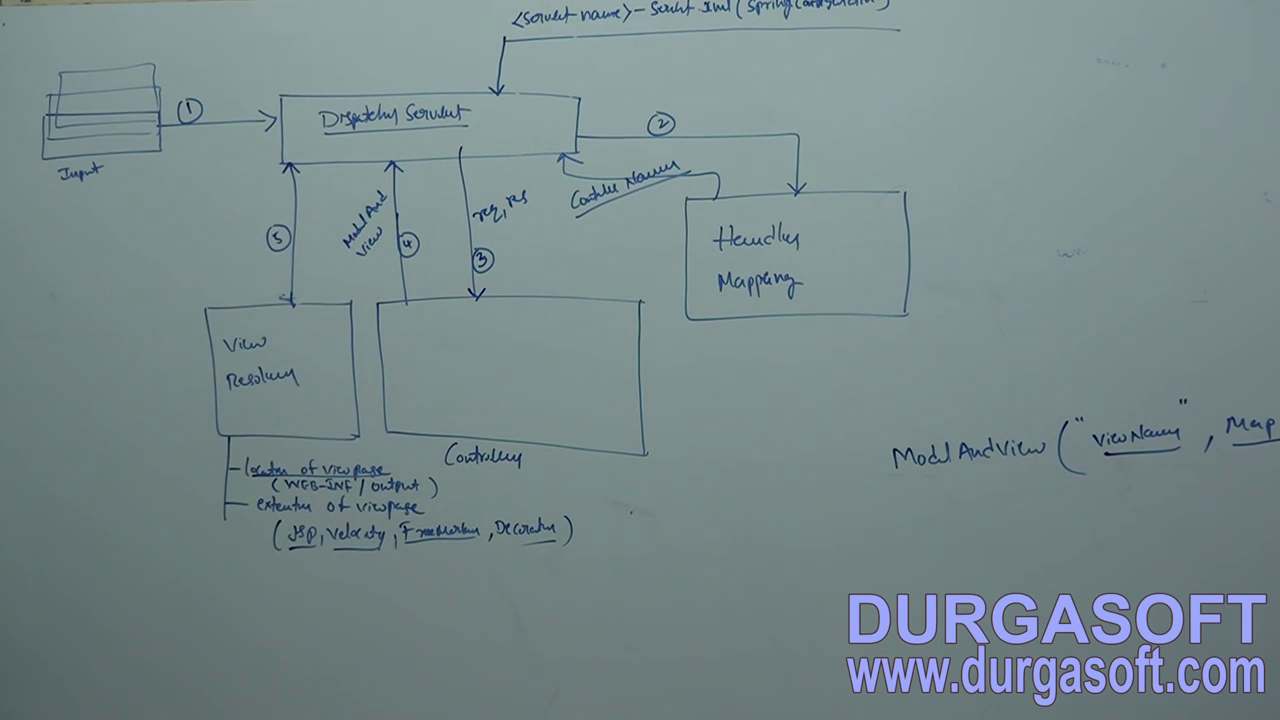 <Servlet name>-Servlet.xml (Spring Configuration)
①
Dispatcher Servlet
②
Input
Controller Name
ModelAnd
View
req, res
⑤
④
③
Handler
Mapping
View
Resolver
Controller
location of view page
(WEB-INF/output)
extention of viewpage
(JSP, Velocity, FreeMarker, Decorator)
ModelAndView ("ViewName", Map
DURGASOFT
www.durgasoft.com